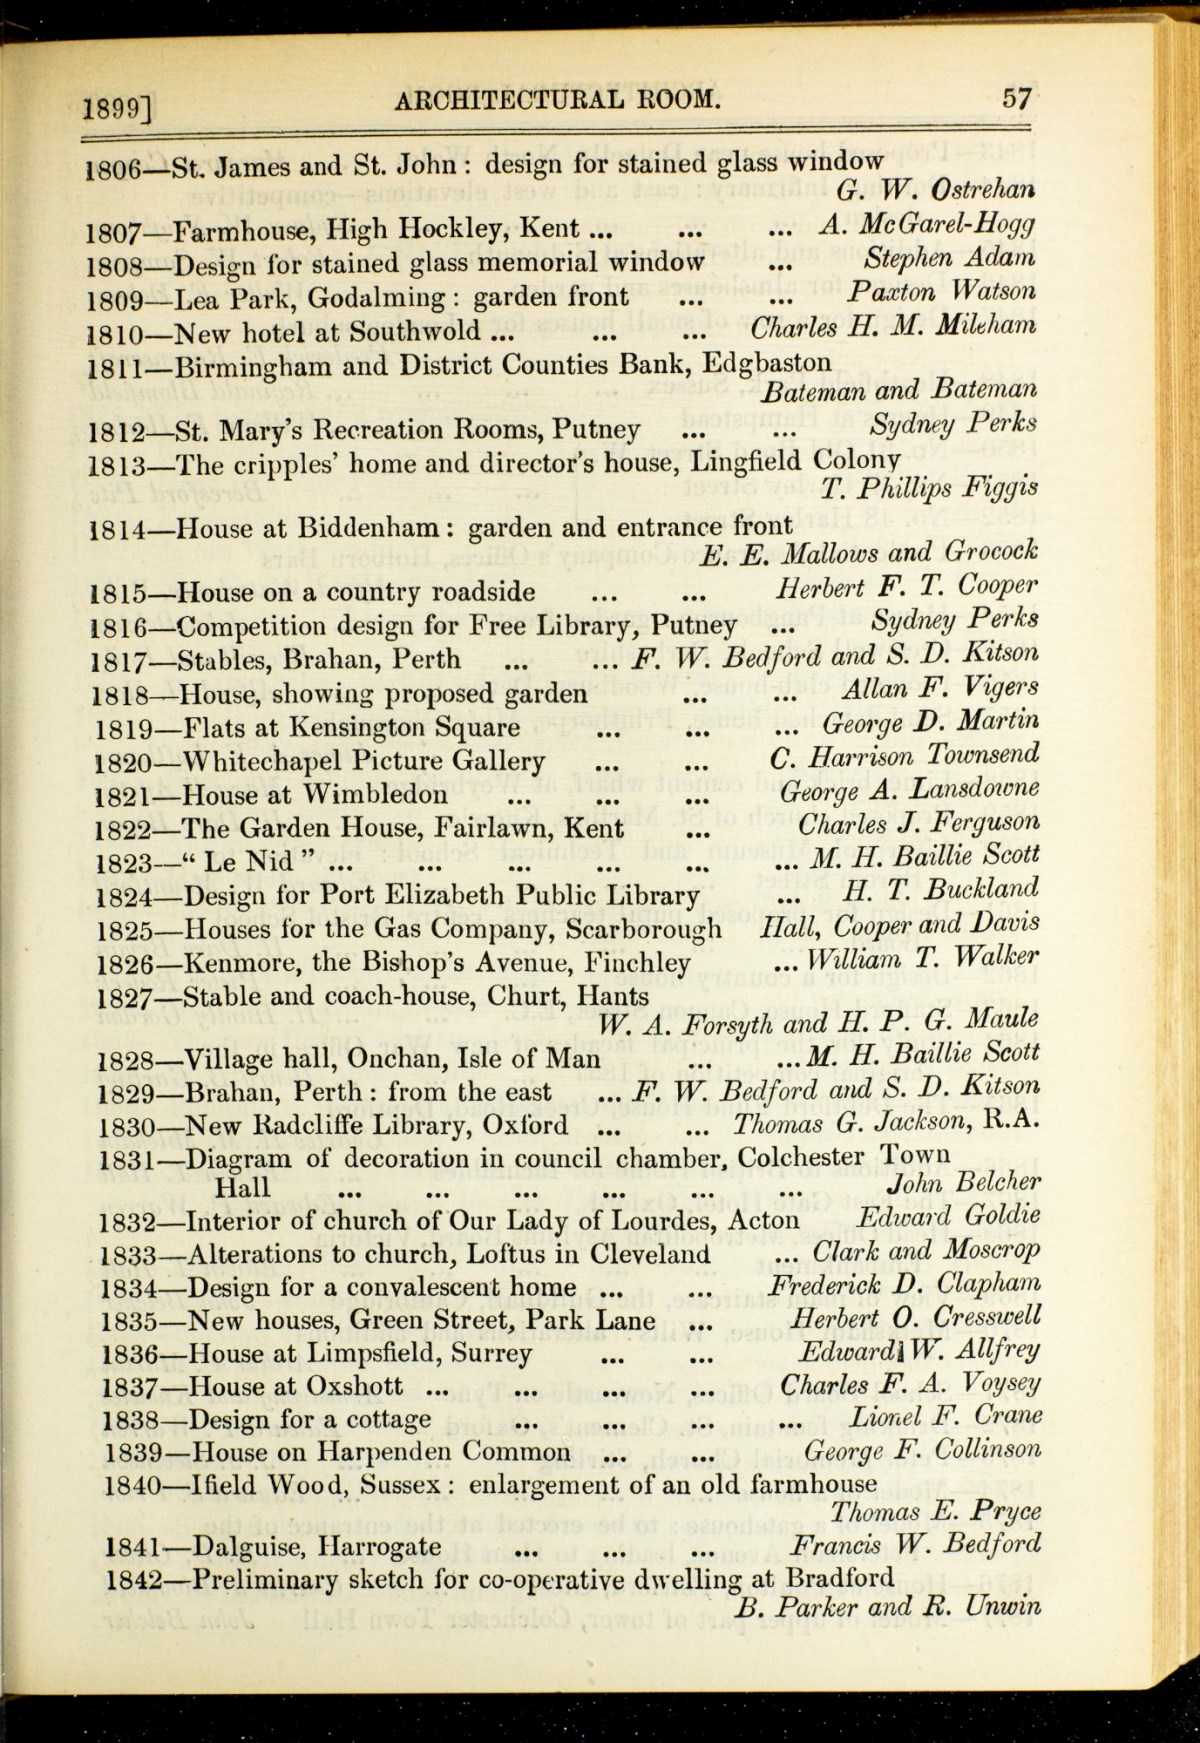 1899] ARCHITECTURAL ROOM. 57
1806—St. James and St. John : design for stained glass window
G. W. Ostrehan
1807—Farmhouse, High Hockley, Kent ... ... ... A. McGarel-Hogg
1808—Design for stained glass memorial window ... Stephen Adam
1809—Lea Park, Godalming : garden front ... ... Paxton Watson
1810—New hotel at Southwold ... ... ... Charles H. M. Mileham
1811—Birmingham and District Counties Bank, Edgbaston
Bateman and Bateman
1812—St. Mary's Recreation Rooms, Putney ... ... Sydney Perks
1813—The cripples' home and director's house, Lingfield Colony
T. Phillips Figgis
1814—House at Biddenham : garden and entrance front
E. E. Mallows and Grocock
1815—House on a country roadside ... ... Herbert F. T. Cooper
1816—Competition design for Free Library, Putney ... Sydney Perks
1817—Stables, Brahan, Perth ... ... F. W. Bedford and S. D. Kitson
1818—House, showing proposed garden ... ... Allan F. Vigers
1819—Flats at Kensington Square ... ... ... George D. Martin
1820—Whitechapel Picture Gallery ... ... C. Harrison Townsend
1821—House at Wimbledon ... ... ... George A. Lansdowne
1822—The Garden House, Fairlawn, Kent ... Charles J. Ferguson
1823—“ Le Nid ” ... ... ... ... ... ... M. H. Baillie Scott
1824—Design for Port Elizabeth Public Library ... H. T. Buckland
1825—Houses for the Gas Company, Scarborough Hall, Cooper and Davis
1826—Kenmore, the Bishop's Avenue, Finchley ... William T. Walker
1827—Stable and coach-house, Churt, Hants
W. A. Forsyth and H. P. G. Maule
1828—Village hall, Onchan, Isle of Man ... ... M. H. Baillie Scott
1829—Brahan, Perth : from the east ... F. W. Bedford and S. D. Kitson
1830—New Radcliffe Library, Oxford ... ... Thomas G. Jackson, R.A.
1831—Diagram of decoration in council chamber, Colchester Town
Hall ... ... ... ... ... ... John Belcher
1832—Interior of church of Our Lady of Lourdes, Acton Edward Goldie
1833—Alterations to church, Loftus in Cleveland ... Clark and Moscrop
1834—Design for a convalescent home ... ... Frederick D. Clapham
1835—New houses, Green Street, Park Lane ... Herbert O. Cresswell
1836—House at Limpsfield, Surrey ... ... Edward W. Allfrey
1837—House at Oxshott ... ... ... ... Charles F. A. Voysey
1838—Design for a cottage ... ... ... ... Lionel F. Crane
1839—House on Harpenden Common ... ... George F. Collinson
1840—Ifield Wood, Sussex : enlargement of an old farmhouse
Thomas E. Pryce
1841—Dalguise, Harrogate ... ... ... Francis W. Bedford
1842—Preliminary sketch for co-operative dwelling at Bradford
B. Parker and R. Unwin